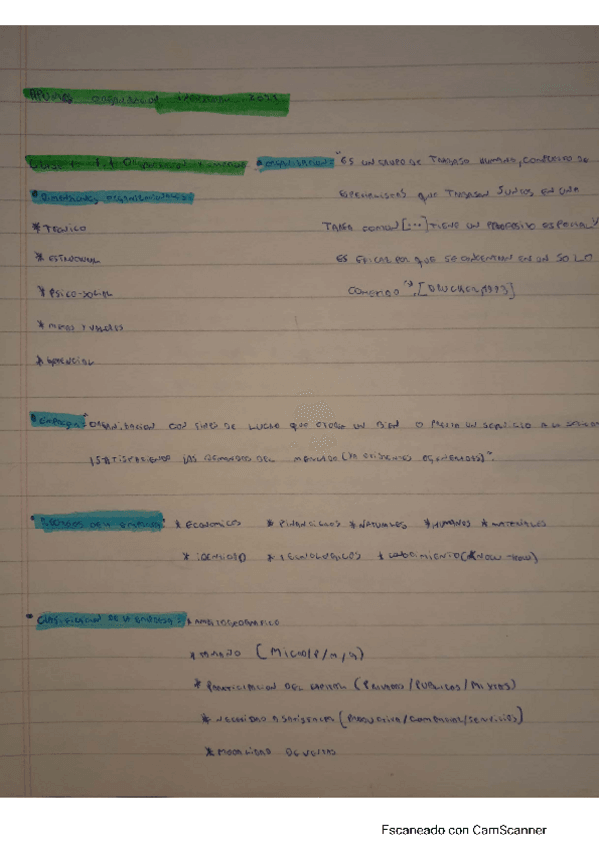 APUNTES ORGANIZACION
• ORGANIZACION: "ES UN GRUPO DE TRABAJO HUMANO, COMPUESTO DE
ESPECIALISTAS QUE TRABAJAN JUNTOS EN UNA
TAREA COMUN [...] TIENE UN PROPOSITO ESPECIAL Y
ES EFICAZ POR QUE SE CONCENTRAN EN UN SOLO
COMETIDO", [DRUCKER, 1993]
* TECNICO
* ESTRUCTURAL
* PSICO-SOCIAL
* METAS Y VALORES
* GERENCIAL
• EMPRESA: "ORGANIZACION CON FINES DE LUCRO QUE OTORGA UN BIEN O PRESTA UN SERVICIO A LA
, SATISFACIENDO LAS DEMANDAS DEL MERCADO (YA EXISTENTES O GENERADAS)".
• RECURSOS DE LA EMPRESA: * ECONOMICOS * FINANCIEROS * NATURALES * HUMANOS * MATERIALES
* TECNOLOGICOS * (KNOW-HOW)
• CLASIFICACION DE LA EMPRESA: * AMBITO GEOGRAFICO
* TAMAÑO (MICRO/P/M/G)
* PARTICIPACION DEL CAPITAL (PRIVADOS/PUBLICOS/MIXTOS)
* NECESIDAD A SATISFACER (PRODUCTIVA/COMERCIAL/SERVICIOS)
* MODALIDAD DE VENTAS
Escaneado con CamScanner